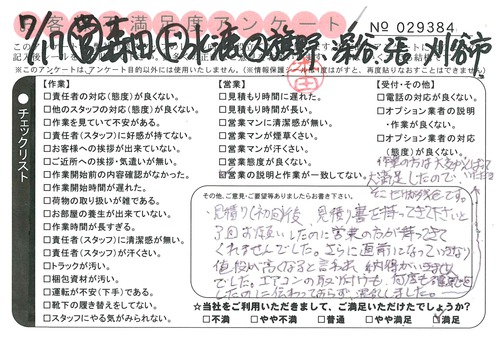 お客様満足度アンケート
No 029384
7/17
刈谷市
※このアンケートは、アンケート目的以外には使用いたしません。
チェックリスト
【作業】
□責任者の対応(態度)が良くない。
□他のスタッフの対応(態度)が良くない。
□作業を見ていて不安がある。
□責任者(スタッフ)に好感が持てない。
□お客様への挨拶が出来ていない。
□ご近所への挨拶・気遣いが無い。
□作業開始前の内容確認がなかった。
□作業開始時間が遅れた。
□荷物の取り扱いが雑である。
□お部屋の養生が出来ていない。
□作業時間が長すぎる。
□責任者(スタッフ)に清潔感が無い。
□責任者(スタッフ)が汗くさい。
□トラックが汚い。
□梱包資材が汚い。
□運転が不安(下手)である。
□靴下の履き替えをしてない。
□スタッフにやる気がみられない。
【営業】
□見積もり時間に遅れた。
□見積もり時間が長い。
□営業マンに清潔感が無い。
□営業マンが煙草くさい。
□営業マンが汗くさい。
□営業態度が良くない。
☑営業の説明と作業が一致してない。
【受付・その他】
□電話の対応が良くない。
□オプション業者の説明
・作業が良くない。
□オプション業者の対応
(態度)が良くない。
作業の方は
大満足したので、
そこだけ残念です。
その他、ご意見・ご要望等ありましたらお書き下さい。
・見積り(初回)後、見積り書を持ってきて下さいと
3回お願いしたのに営業の方が持ってきて
くれませんでした。さらに直前になっていきなり
値段が高くなると言われ、納得がいきません
でした。エアコンの取り付けも、何度も確認を
したのに伝わっておらず、混乱しました。
☆当社をご利用いただきまして、ご満足いただけたでしょうか？
□不満 □やや不満 □普通 □やや満足 □満足